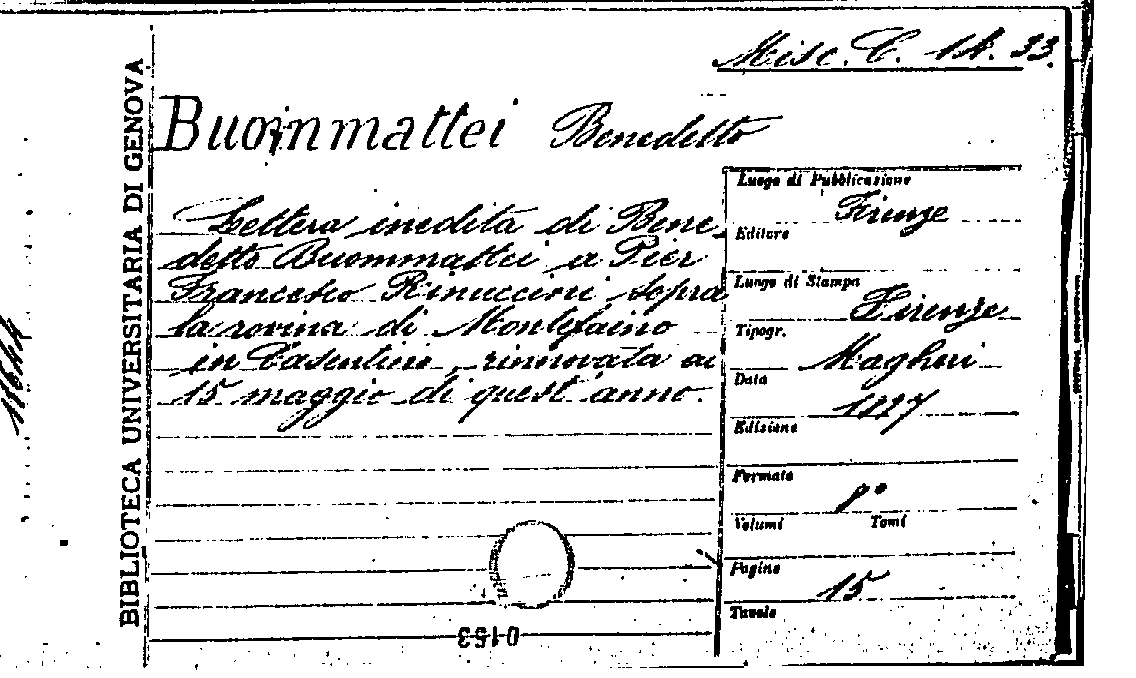 Misc. C. 14. 33.
BIBLIOTECA UNIVERSITARIA DI GENOVA
Buommattei Benedetto
Lettera inedita di Bene
detto Buommattei a Pier
Francesco Rinuccini sopra
la rovina di Montefaino
in Casentino, rinnovata ai
15 maggio di quest'anno.
Luogo di Pubblicazione
Firenze
Editore
Luogo di Stampa
Firenze
Tipogr.
Magheri
Data
1827
Edizione
Formato
8°
Volumi Tomi
Pagine
15
Tavole
0153